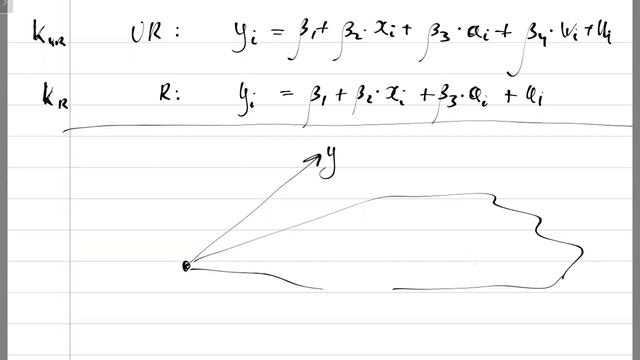 k_UR UR: y_i = β_1 + β_2 · x_i + β_3 · a_i + β_4 · w_i + u_i
k_R R: y_i = β_1 + β_2 · x_i + β_3 · a_i + u_i
y